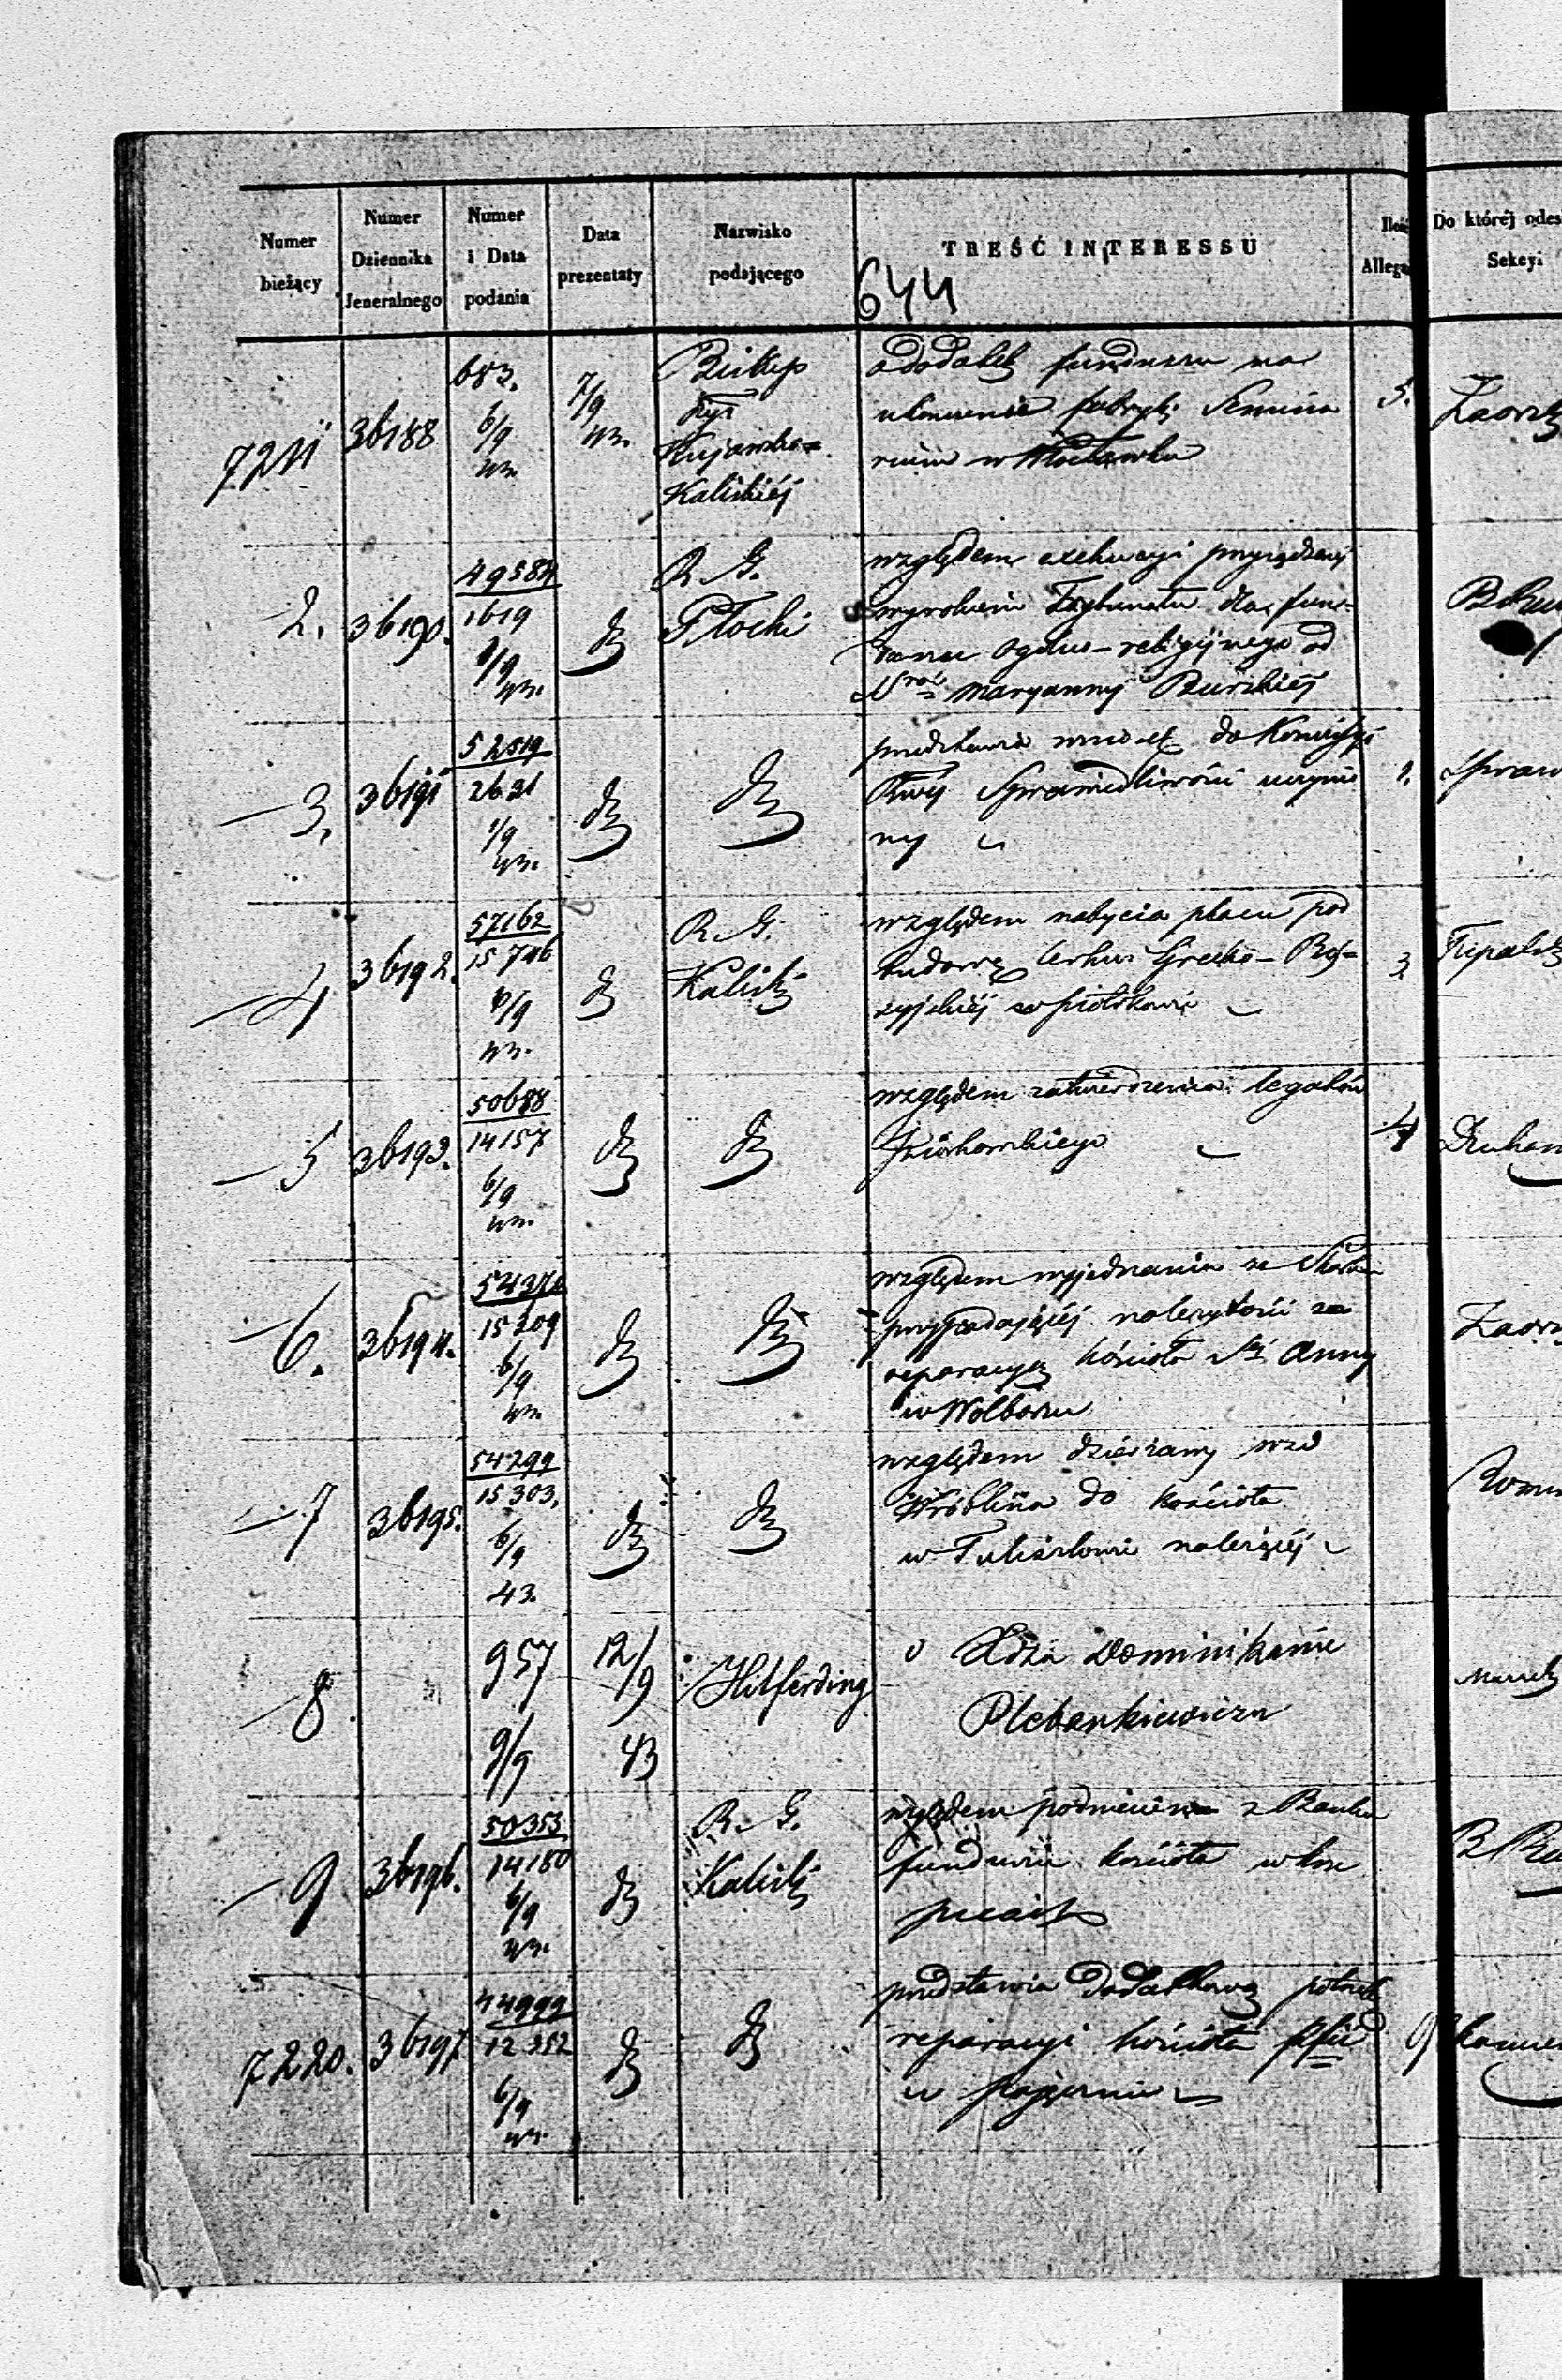 Numer bieżący | Numer Dziennika Jeneralnego | Numer i Data podania | Data prezentaty | Nazwisko podającego | TREŚĆ INTERESSU | Allega | Do któréj odes Sekcyi
644
7211 | 36188 | 683. 6/9 43. | 7/9 43. | Biskup Dyi Kujawsko= Kaliskiéj | o dodatek funduszu na | 5.
ukończenie fabryki Semina
rium w Włocławku
2. | 36190. | 49584 1619 /9 43. | dto | R. G. Płocki | względem exekucyi przysądzonej
wyrokiem Trybunatu dla fun=
duszu ogólno-religijnego od
Maryanny Burskiéj
3. | 36191 | 52519 2631 1/9 43. | dto | dto | przedstawia wniosek do Komissyi | 1. | Spraw
Rwéj Sprawiedliwości uczynio
ny
4 | 36192. | 57162 15746 6/9 43. | dto | R. G. Kaliski | względem nabycia placu pod | 3
budowę Cerkwi Grecko-Ros=
syjskiéj w Piotrkowie
5 | 36193. | 50688 14157 6/9 43. | dto | dto | względem zatwierdzenia legatów | 4
6. | 36194. | 15209 6/9 43 | dto | dto | względem wyjednania ze Skarbu
przypadającéj należytości za
reparacyę kościoła Sej Anny
w Wolborzu
7 | 36195. | 54299 15303. 6/9 43. | dto | dto | względem dziesięciny wsi
Wróblina do kościoła
w Tuliszkowie należącéj
8. | 957 9/9 | 12/9 43 | Hilferding | o Xdza Dominikanie
Plebankiewiczu
9 | 36196. | 50353 14180 6/9 43. | dto | R. G. Kaliski | względem podniesienia z Banku
funduszu kościoła w
7220. | 36197 | 44999 12352 6/9 43. | dto | dto | przedstawia dodatkową potrzebę | 9
reparacyi kościoła
w Pajęcznie